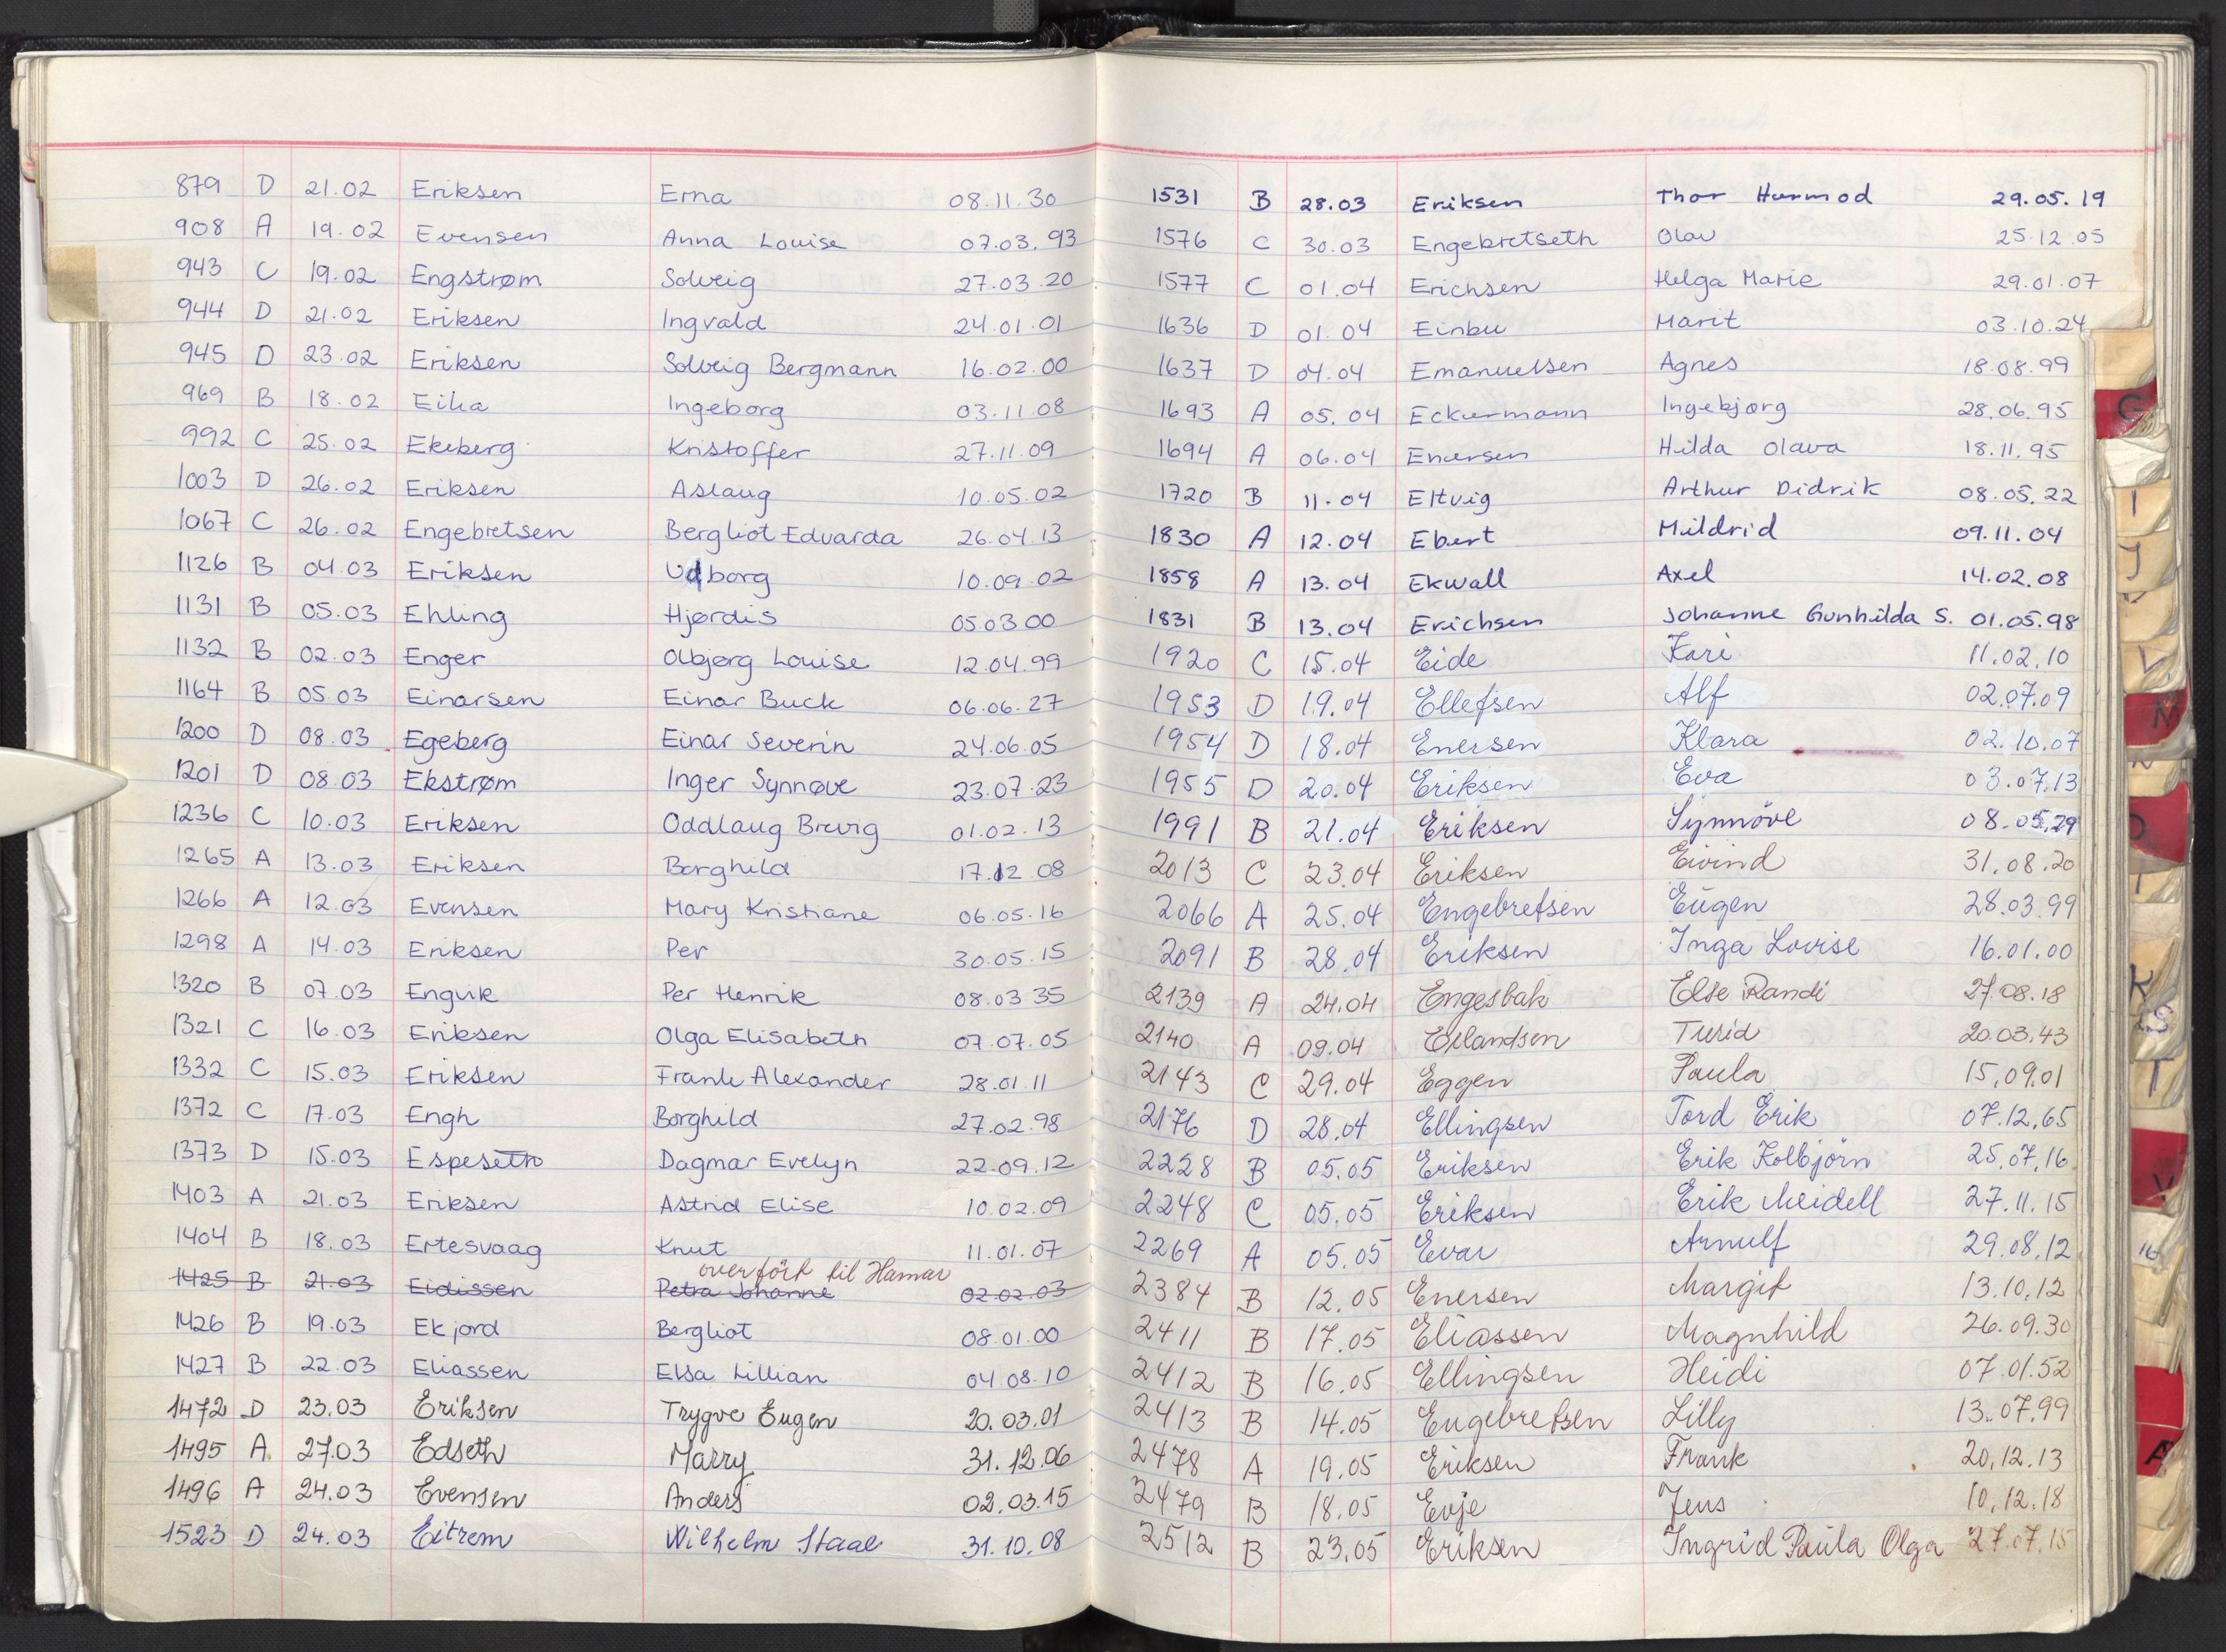 879 D 21.02 Eriksen Erna 08.11.30
908 A 19.02 Evensen Anna Louise 07.03.93
943 C 19.02 Engstrøm Solveig 27.03.20
944 D 21.02 Eriksen Ingvald 24.01.01
945 D 23.02 Eriksen Solveig Bergmann 16.02.00
969 B 18.02 Eika Ingeborg 03.11.08
992 C 25.02 Ekeberg Kristoffer 27.11.09
1003 D 26.02 Eriksen Aslaug 10.05.02
1067 C 26.02 Engebretsen Bergliot Edvarda 26.04.13
1126 B 04.03 Eriksen Udborg 10.09.02
1131 B 05.03 Ehling Hjørdis 05.03 00
1132 B 02.03 Enger Olbjørg Louise 12.04.99
1164 B 05.03 Einarsen Einar Buck 06.06.27
1200 D 08.03 Egeberg Einar Severin 24.06.05
1201 D 08.03 Ekstrøm Inger Synnøve 23.07.23
1236 C 10.03 Eriksen Oddlaug Brevig 01.02.13
1265 A 13.03 Eriksen Borghild 17.12 08
1266 A 12.03 Evensen Mary Kristiane 06.05.16
1298 A 14.03 Eriksen Per 30.05.15
1320 B 07.03 Engvik Per Henrik 08.03 35
1321 C 16.03 Eriksen Olga Elisabeth 07.07.05
1332 C 15.03 Eriksen Frank Alexander 28.01.11
1372 C 17.03 Engh Borghild 27.02.98
1373 D 15.03 Espeseth Dagmar Evelyn 22.09.12
1403 A 21.03 Eriksen Astrid Elise 10.02.09
1404 B 18.03 Ertesvaag Knut 11.01.07
overført til Hamar
1425 B 21.03 Eidissen Petra Johanne 02.02.03
1426 B 19.03 Ekjord Bergliot 08.01.00
1427 B 22.03 Eliassen Elsa Lillian 04.08.10
1472 D 23.03 Eriksen Trygve Eugen 20.03.01
1495 A. 27.03 Edseth Marry 31.12.06
1496 A 24.03 Evensen Anders 02.03.15
1523 D 24.03 Eitrem Wilhelm Staal 31.10.08
1531 B 28.03 Eriksen Thor Hermod 29.05.19
1576 C 30.03 Engebretseth Olav 25.12.05
1577 C 01.04 Erichsen Helga Marie 29.01.07
1636 D 01.04 Einbu Marit 03.10.24
1637 D 04.04 Emanuelsen Agnes 18.08.99
1693 A 05.04 Eckermann Ingebjørg 28.06.95
1694 A 06.04 Enersen Hilda Olava 18.11.95
1720 B 11.04 Eltvig Arthur Didrik 08.05.22
1830 A 12.04 Ebert Mildrid 09.11.04
1858 A 13.04 Ekwall Axel 14.02.08
1831 B 13.04 Erichsen Johanne Gunhilda S. 01.05.98
1920 C 15.04 Eide Kari 11.02.10
1953 D 19.04 Ellefsen Alf 02.07.09
1954 D 18.04 Enersen Klara 02.10.07
1955 D 20.04 Eriksen Eva 03.07.13
1991 B 21.04 Eriksen Synnöve 08.05.29
2013 C 23.04 Eriksen Eivind 31.08.20
2066 A 25.04 Engebretsen Eugen 28.03.99
2091 B 28.04 Eriksen Inga Lovise 16.01.00
2139 A 24.04 Engesbak Else Randi 27.08.18
2140 A 09.04 Erlandsen Turid 20.03.43
2143 C 29.04 Eggen Paula 15.09.01
2176 D 28.04 Ellingsen Tord Erik 07.12.65
2228 B 05.05 Eriksen Erik Kolbjörn 25.07.16
2248 C 05.05 Eriksen Erik Meidell 27.11.15
2269 A 05.05 Evar Arnulf 29.08.12
2384 B 12.05 Enersen Margit 13.10.12
2411 B 17.05 Eliassen Magnhild 26.09.30
2412 B 16.05 Ellingsen Heidi 07.01.52
2413 B 14.05 Engebretsen Lilly 13.07.99
2478 A 19.05 Eriksen Frank 20.12.13
2479 B 18.05 Evje Jens 10.12.18
2512 B 23.05 Eriksen Ingrid Paula Olga 27.07.15
G
I
J
L
M
O
K
S
T
V
16
A